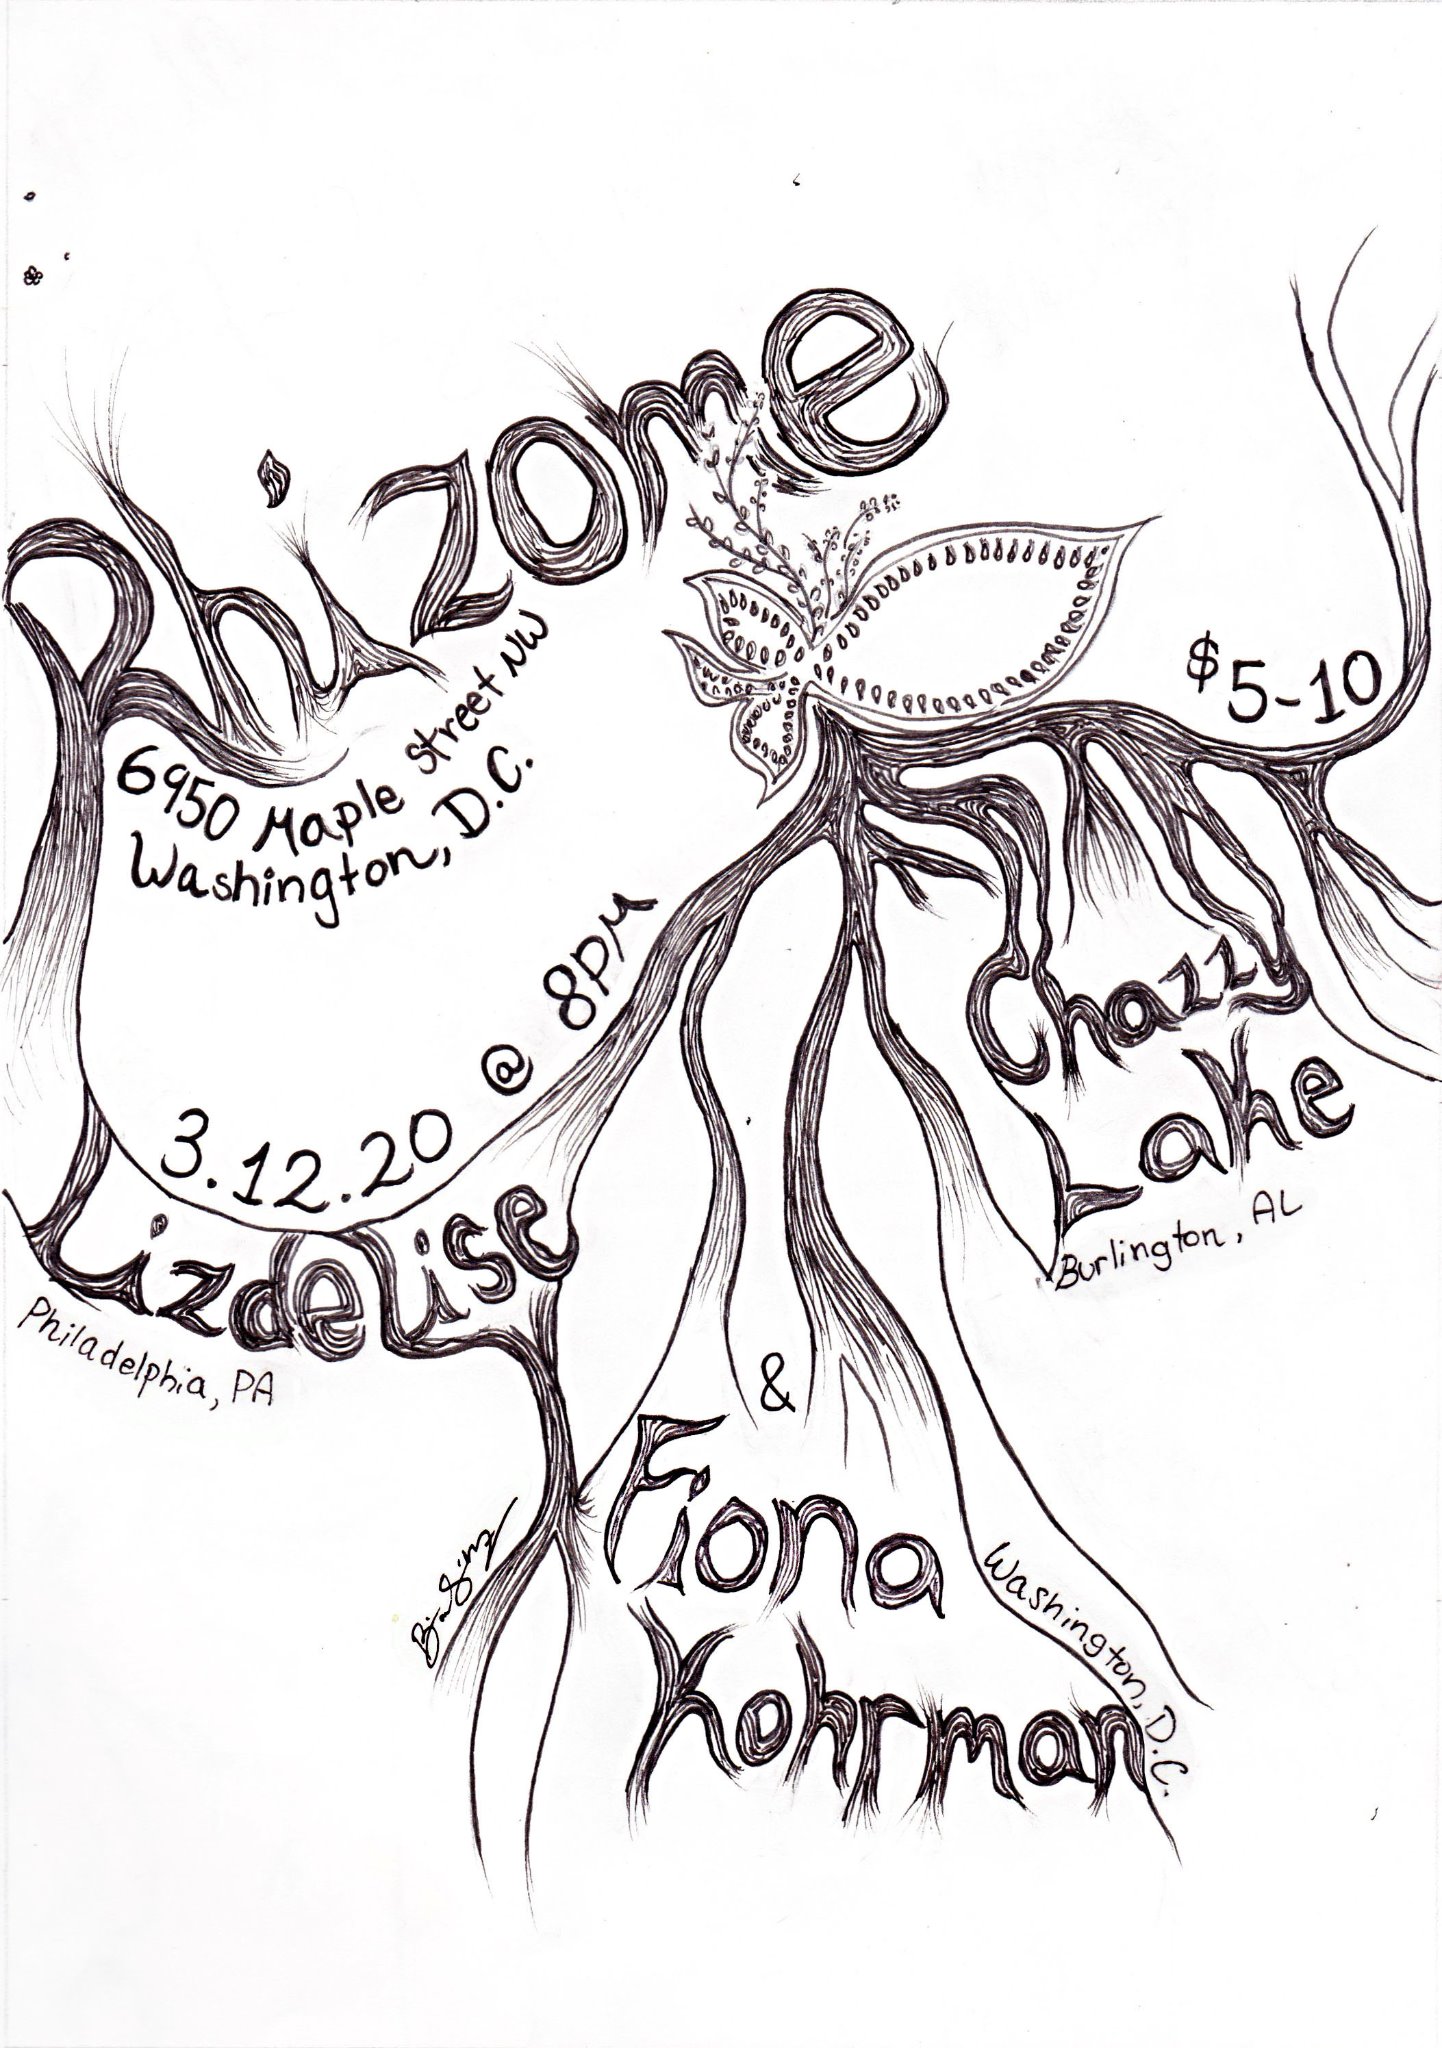 Rhizome
6950 Maple Street NW
Washington, D.C.
$5-10
3.12.20 @ 8pm
Lizdelise
Philadelphia, PA
Chazzy
Lake
Burlington, AL
&
Fiona
Kohrman
Washington, D.C.